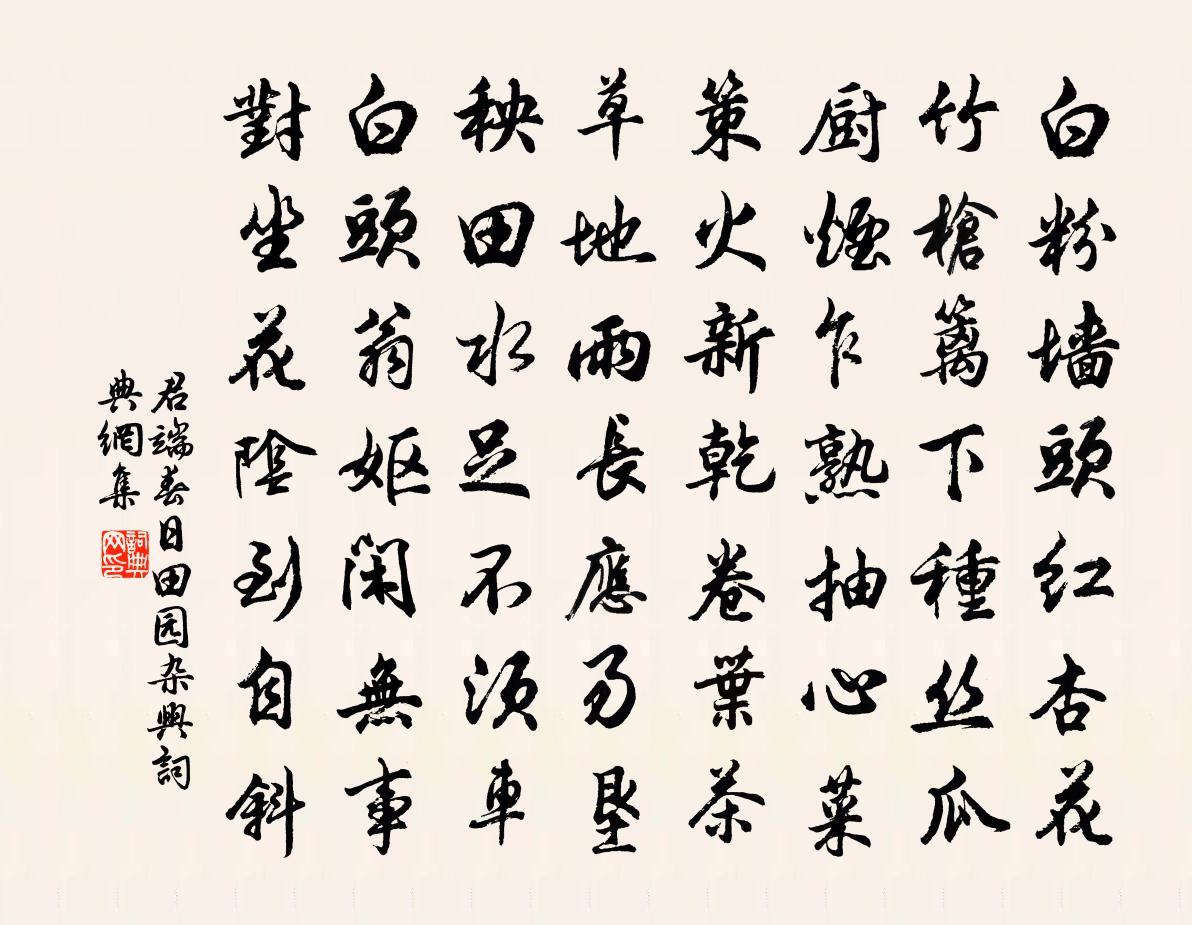 白粉墙頭红杏花
竹槍篱下種丝瓜
厨煙乍熟抽心菜
策火新乾卷葉茶
草地雨長應易垦
秧田水足不須車
白頭翁妪閑無事
對坐花陰到自斜
君端春日田园杂興詞
典網集
詞典
网印